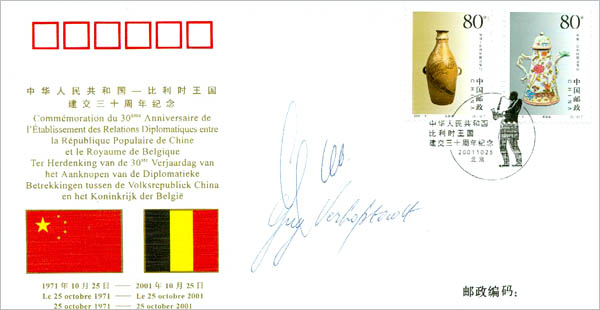 中华人民共和国—比利时王国
建交三十周年纪念
Commémoration du 30ème Anniversaire de
l'Établissement des Relations Diplomatiques entre
la République Populaire de Chine
et le Royaume de Belgique
Ter Herdenking van de 30ste Verjaardag van
het Aanknopen van de Diplomatieke
Betrekkingen tussen de Volksrepubliek China
en het Koninkrijk der België
1971年10月25日 — 2001年10月25日
Le 25 octobre 1971 — Le 25 octobre 2001
25 october 1971 — 25 october 2001
80分
中国邮政
CHINA
80分
中国邮政
CHINA
中华人民共和国
比利时王国
建交三十周年纪念
20011025
北京
邮政编码：